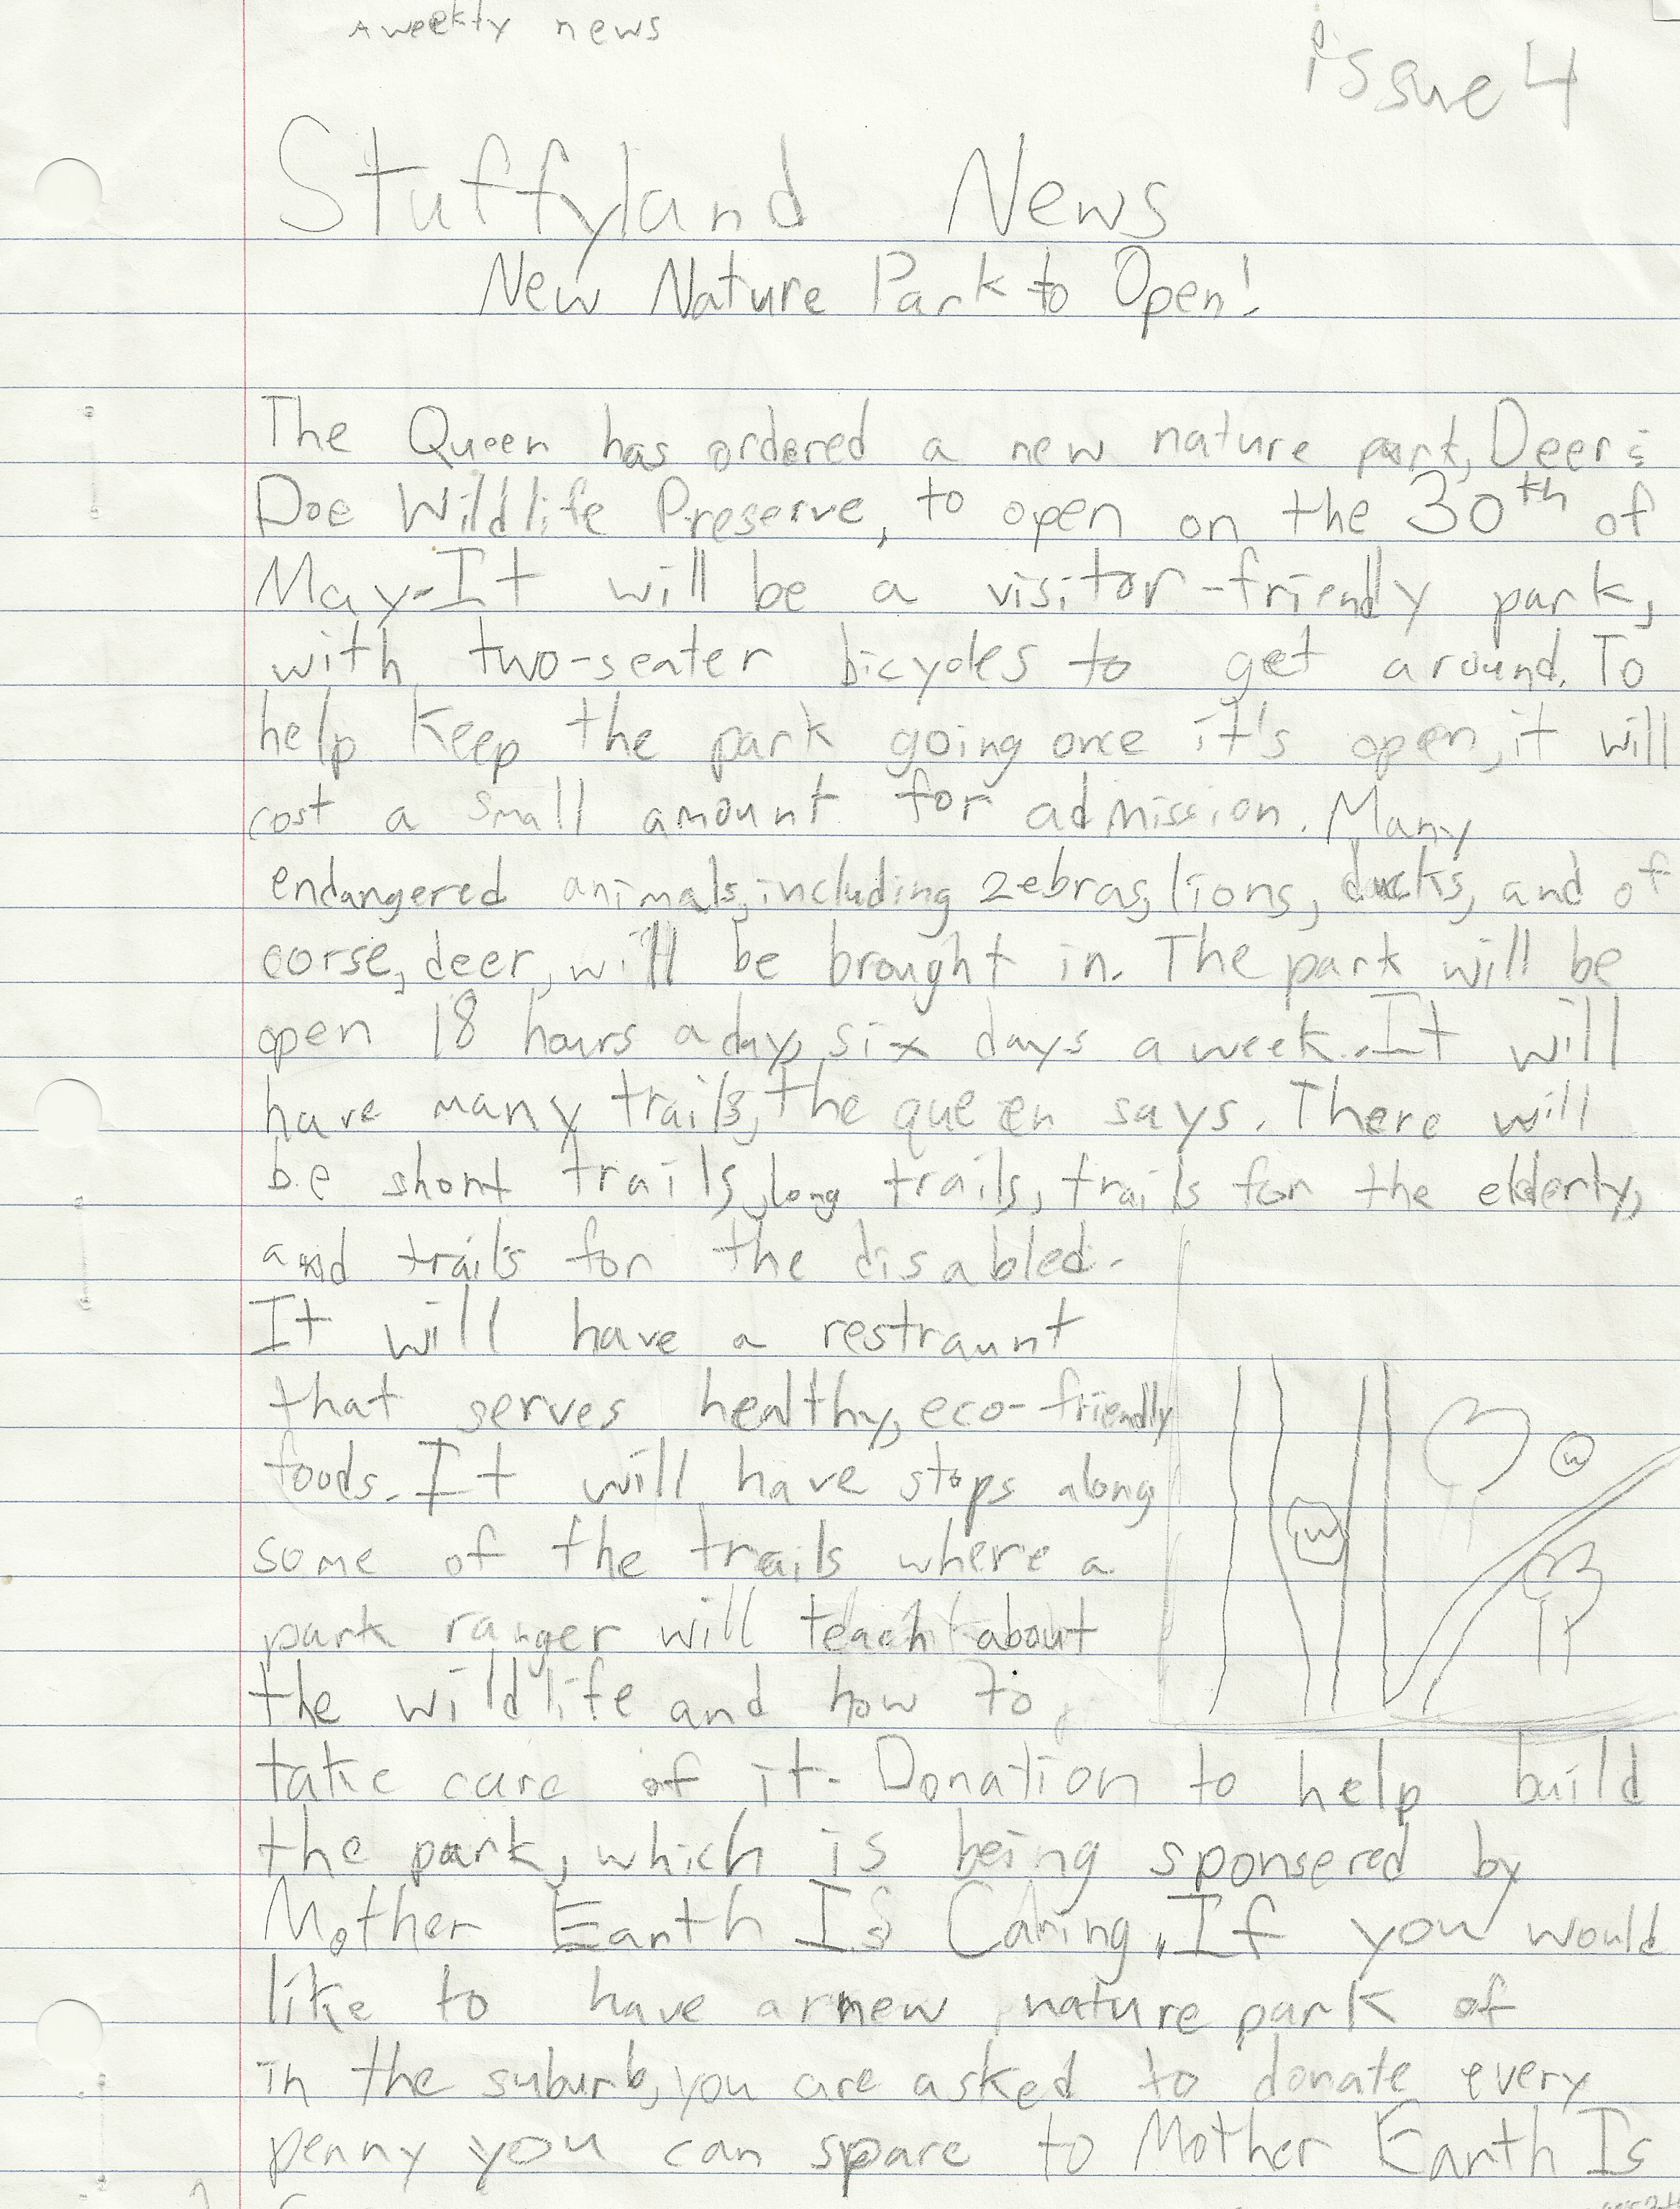 A weekly news
issue 4
Stuffyland News
New Nature Park to Open!
The Queen has ordered a new nature park, Deer &
Doe Wildlife Preserve, to open on the 30th of
May. It will be a visitor-friendly park,
with two-seater bicycles to get around. To
help keep the park going once it's open, it will
cost a small amount for admission. Many
endangered animals, including zebras, lions, ducks, and of
corse, deer, will be brought in. The park will be
open 18 hours a day, six days a week. It will
have many trails, the queen says. There will
be short trails, long trails, trails for the elderly,
and trails for the disabled.
It will have a restraunt
that serves healthy, eco-friendly
foods. It will have stops along
some of the trails where a
park ranger will teach about
the wildlife and how to
take care of it. Donation to help build
the park, which is being sponsered by
Mother Earth Is Caring. If you would
like to have a new nature park of
in the suburb, you are asked to donate every
penny you can spare to Mother Earth Is
W
W